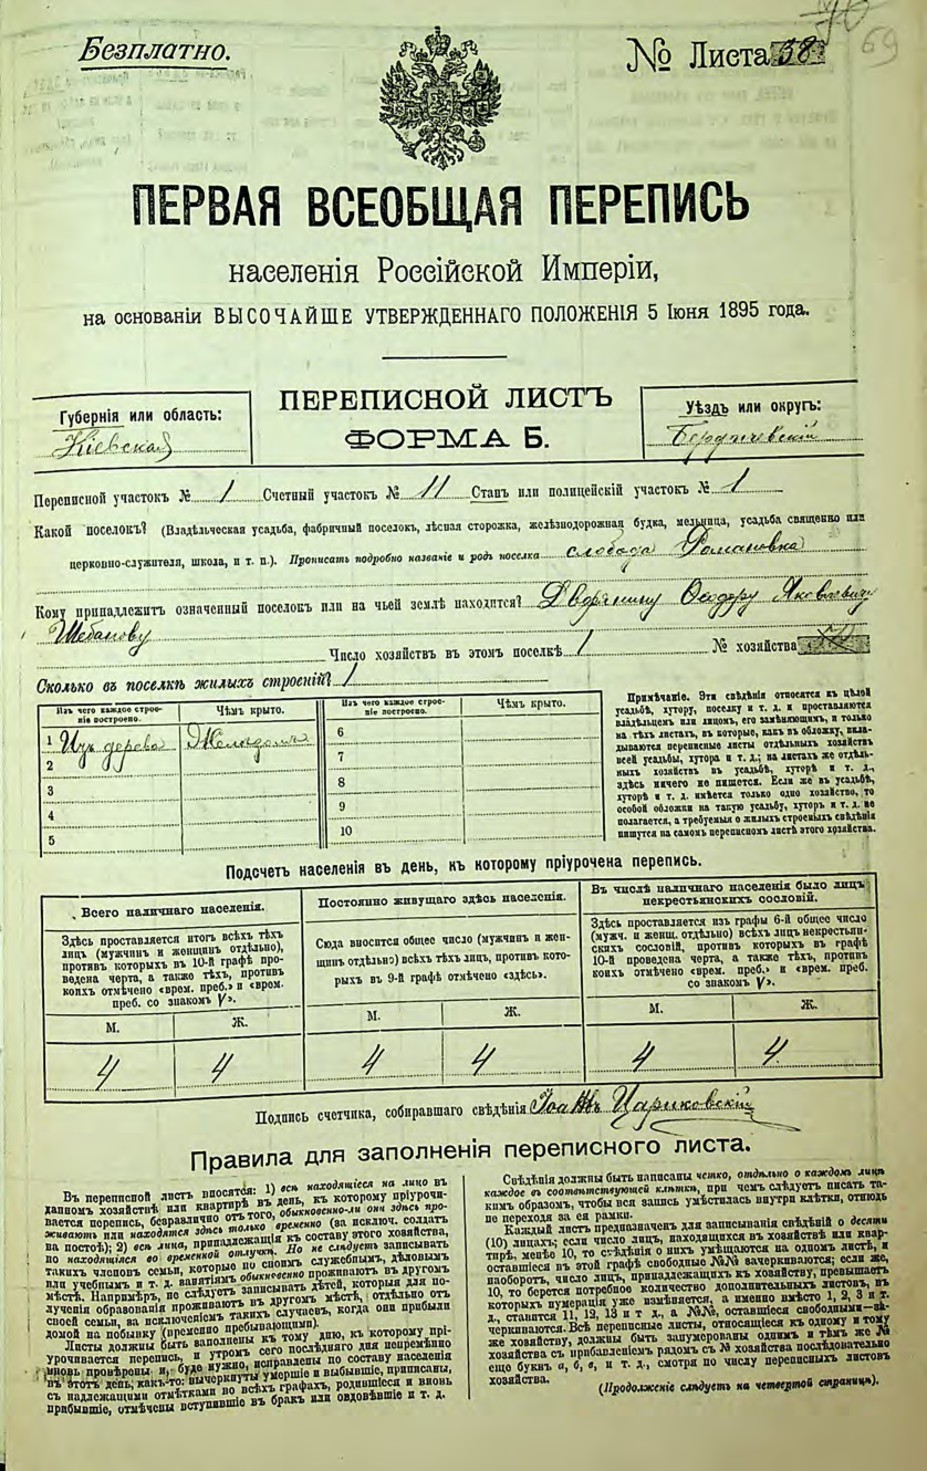 Безплатно.
№ Листа 38
69
ПЕРВАЯ ВСЕОБЩАЯ ПЕРЕПИСЬ
населенія Россійской Имперіи,
на основаніи ВЫСОЧАЙШЕ УТВЕРЖДЕННАГО ПОЛОЖЕНІЯ 5 Іюня 1895 года.
Губернія или область:
Кіевская
ПЕРЕПИСНОЙ ЛИСТЪ
ФОРМА Б.
Уѣздъ или округъ:
Бердичевскій
Переписной участокъ № 1 Счетный участокъ № 11 Станъ или полицейскій участокъ № 1
Какой поселокъ? (Владѣльческая усадьба, фабричный поселокъ, лѣсная сторожка, желѣзнодорожная будка, мельница, усадьба священно или
церковно-служителя, школа, и т. п.). Прописать подробно названіе и родъ поселка слобода Романовка
Кому принадлежитъ означенный поселокъ или на чьей землѣ находится? Дворянину Ѳеодору Яковлевичу
Шебанову
Число хозяйствъ въ этомъ поселкѣ 1 № хозяйства
Сколько въ поселкѣ жилыхъ строеній? 1
Изъ чего каждое строе-
ніе построено.
Чѣмъ крыто.
Изъ чего каждое строе-
ніе построено.
Чѣмъ крыто.
1 Изъ дерева
2
3
4
5
6
7
8
9
10
Примѣчаніе. Эти свѣдѣнія относятся къ цѣлой
усадьбѣ, хутору, поселку и т. д. и проставляются
владѣльцемъ или лицомъ, его замѣняющимъ, и только
на тѣхъ листахъ, въ которые, какъ въ обложку, вкла-
дываются переписные листы отдѣльныхъ хозяйствъ
всей усадьбы, хутора и т. д.; на листахъ же отдѣль-
ныхъ хозяйствъ въ усадьбѣ, хуторѣ и т. д.,
здѣсь ничего не пишется. Если же въ усадьбѣ,
хуторѣ и т. д. имѣется только одно хозяйство, то
особой обложки на такую усадьбу, хуторъ и т. д. не
полагается, а требуемыя о жилыхъ строеніяхъ свѣдѣнія
пишутся на самомъ переписномъ листѣ этого хозяйства.
Подсчетъ населенія въ день, къ которому пріурочена перепись.
Всего наличнаго населенія.
Здѣсь проставляется итогъ всѣхъ тѣхъ
лицъ (мужчинъ и женщинъ отдѣльно),
противъ которыхъ въ 10-й графѣ про-
ведена черта, а также тѣхъ, противъ
коихъ отмѣчено «врем. преб.» и «врем.
преб. со знакомъ V».
М. Ж.
4 4
Постоянно живущаго здѣсь населенія.
Сюда вносится общее число (мужчинъ и жен-
щинъ отдѣльно) всѣхъ тѣхъ лицъ, противъ кото-
рыхъ въ 9-й графѣ отмѣчено «здѣсь».
М. Ж.
4 4
Въ числѣ наличнаго населенія было лицъ
некрестьянскихъ сословій.
Здѣсь проставляется изъ графы 6-й общее число
(мужч. и женщ. отдѣльно) всѣхъ лицъ некрестьян-
скихъ сословій, противъ которыхъ въ графѣ
10-й проведена черта, а также тѣхъ, противъ
коихъ отмѣчено «врем. преб.» и «врем. преб.
со знакомъ V».
М. Ж.
4 4
Подпись счетчика, собиравшаго свѣдѣнія Іоаннъ Цариковскій
Правила для заполненія переписного листа.
Въ переписной листъ вносятся: 1) всѣ находящіеся на лицо въ
данномъ хозяйствѣ или квартирѣ въ день, къ которому пріурочи-
вается перепись, безразлично отъ того, обыкновенно-ли они здѣсь про-
живаютъ или находятся здѣсь только временно (за исключ. солдатъ
на постоѣ); 2) всѣ лица, принадлежащія къ составу этого хозяйства,
но находящіеся во временной отлучкѣ. Но не слѣдуетъ записывать
такихъ членовъ семьи, которые по своимъ служебнымъ, дѣловымъ
или учебнымъ и т. д. занятіямъ обыкновенно проживаютъ въ другомъ
мѣстѣ. Напримѣръ, не слѣдуетъ записывать дѣтей, которыя для по-
лученія образованія проживаютъ въ другомъ мѣстѣ, отдѣльно отъ
своей семьи, за исключеніемъ такихъ случаевъ, когда они прибыли
домой на побывку (временно пребывающими).
Листы должны быть заполнены къ тому дню, къ которому прі-
урочивается перепись, и утромъ сего послѣдняго дня непремѣнно
вновь провѣрены и, буде нужно, исправлены по составу населенія
въ этотъ день; какъ-то: вычеркнуты умершіе и выбывшіе, приписаны,
съ надлежащими отмѣтками во всѣхъ графахъ, родившіеся и вновь
прибывшіе, отмѣчены вступившіе въ бракъ или овдовѣвшіе и т. д.
Свѣдѣнія должны быть написаны четко, отдѣльно о каждомъ лицѣ
каждое въ соотвѣтствующей клѣткѣ, при чемъ слѣдуетъ писать та-
кимъ образомъ, чтобы вся запись умѣстилась внутри клѣтки, отнюдь
не переходя за ея рамки.
Каждый листъ предназначенъ для записыванія свѣдѣній о десяти
(10) лицахъ; если число лицъ, находящихся въ хозяйствѣ или квар-
тирѣ, менѣе 10, то свѣдѣнія о нихъ умѣщаются на одномъ листѣ, и
оставшіеся въ этой графѣ свободные №№ зачеркиваются; если же,
наоборотъ, число лицъ, принадлежащихъ къ хозяйству, превышаетъ
10, то берется потребное количество дополнительныхъ листовъ, въ
которыхъ нумерація уже измѣняется, а именно вмѣсто 1, 2, 3 и т.
д., ставится 11, 12, 13 и т. д., а №№, оставшіеся свободными—за-
черкиваются. Всѣ переписные листы, относящіеся къ одному и тому
же хозяйству, должны быть занумерованы однимъ и тѣмъ же №
хозяйства съ прибавленіемъ рядомъ съ № хозяйства послѣдовательно
еще буквъ а, б, в, и т. д., смотря по числу переписныхъ листовъ
хозяйства.
(Продолженіе слѣдуетъ на четвертой страницѣ).